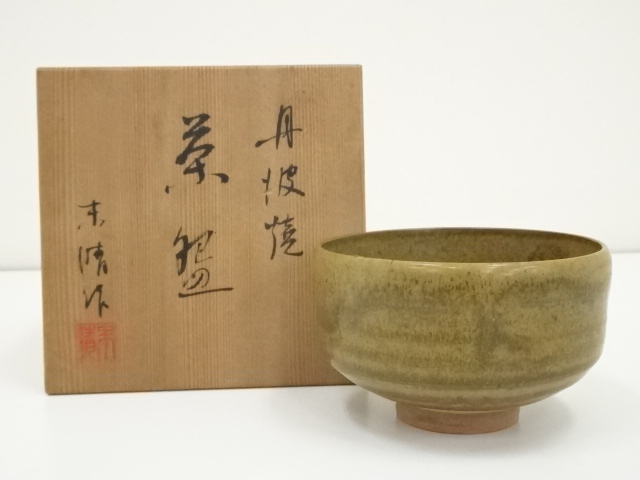 丹波焼
茶盌
末晴作